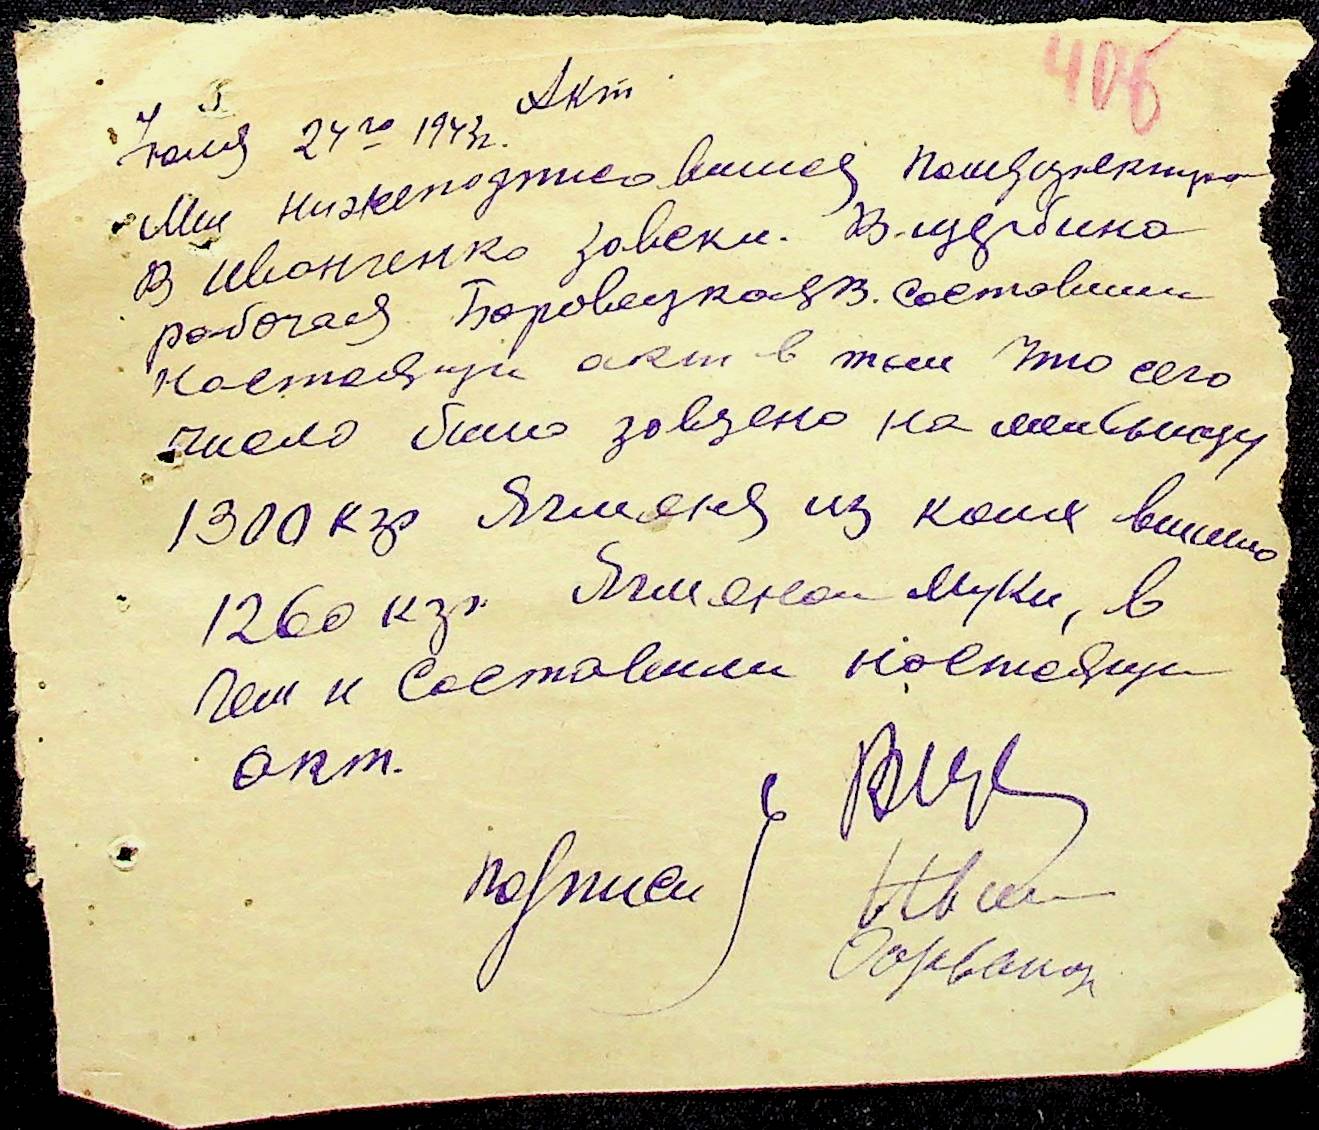 406
Акт
Июля 24го 1943г.
Мы нижеподписавшися
В Иванченко завски. В. щербина
рабочая Боровецкая В. составили
Настоящи акт в том Что сего
Число было завезено на мельницу
1300 кгр Ячменя из коих вышло
1260 кгр Ячменой Муки, в
Чем и Составили настоящи
акт.
подписи